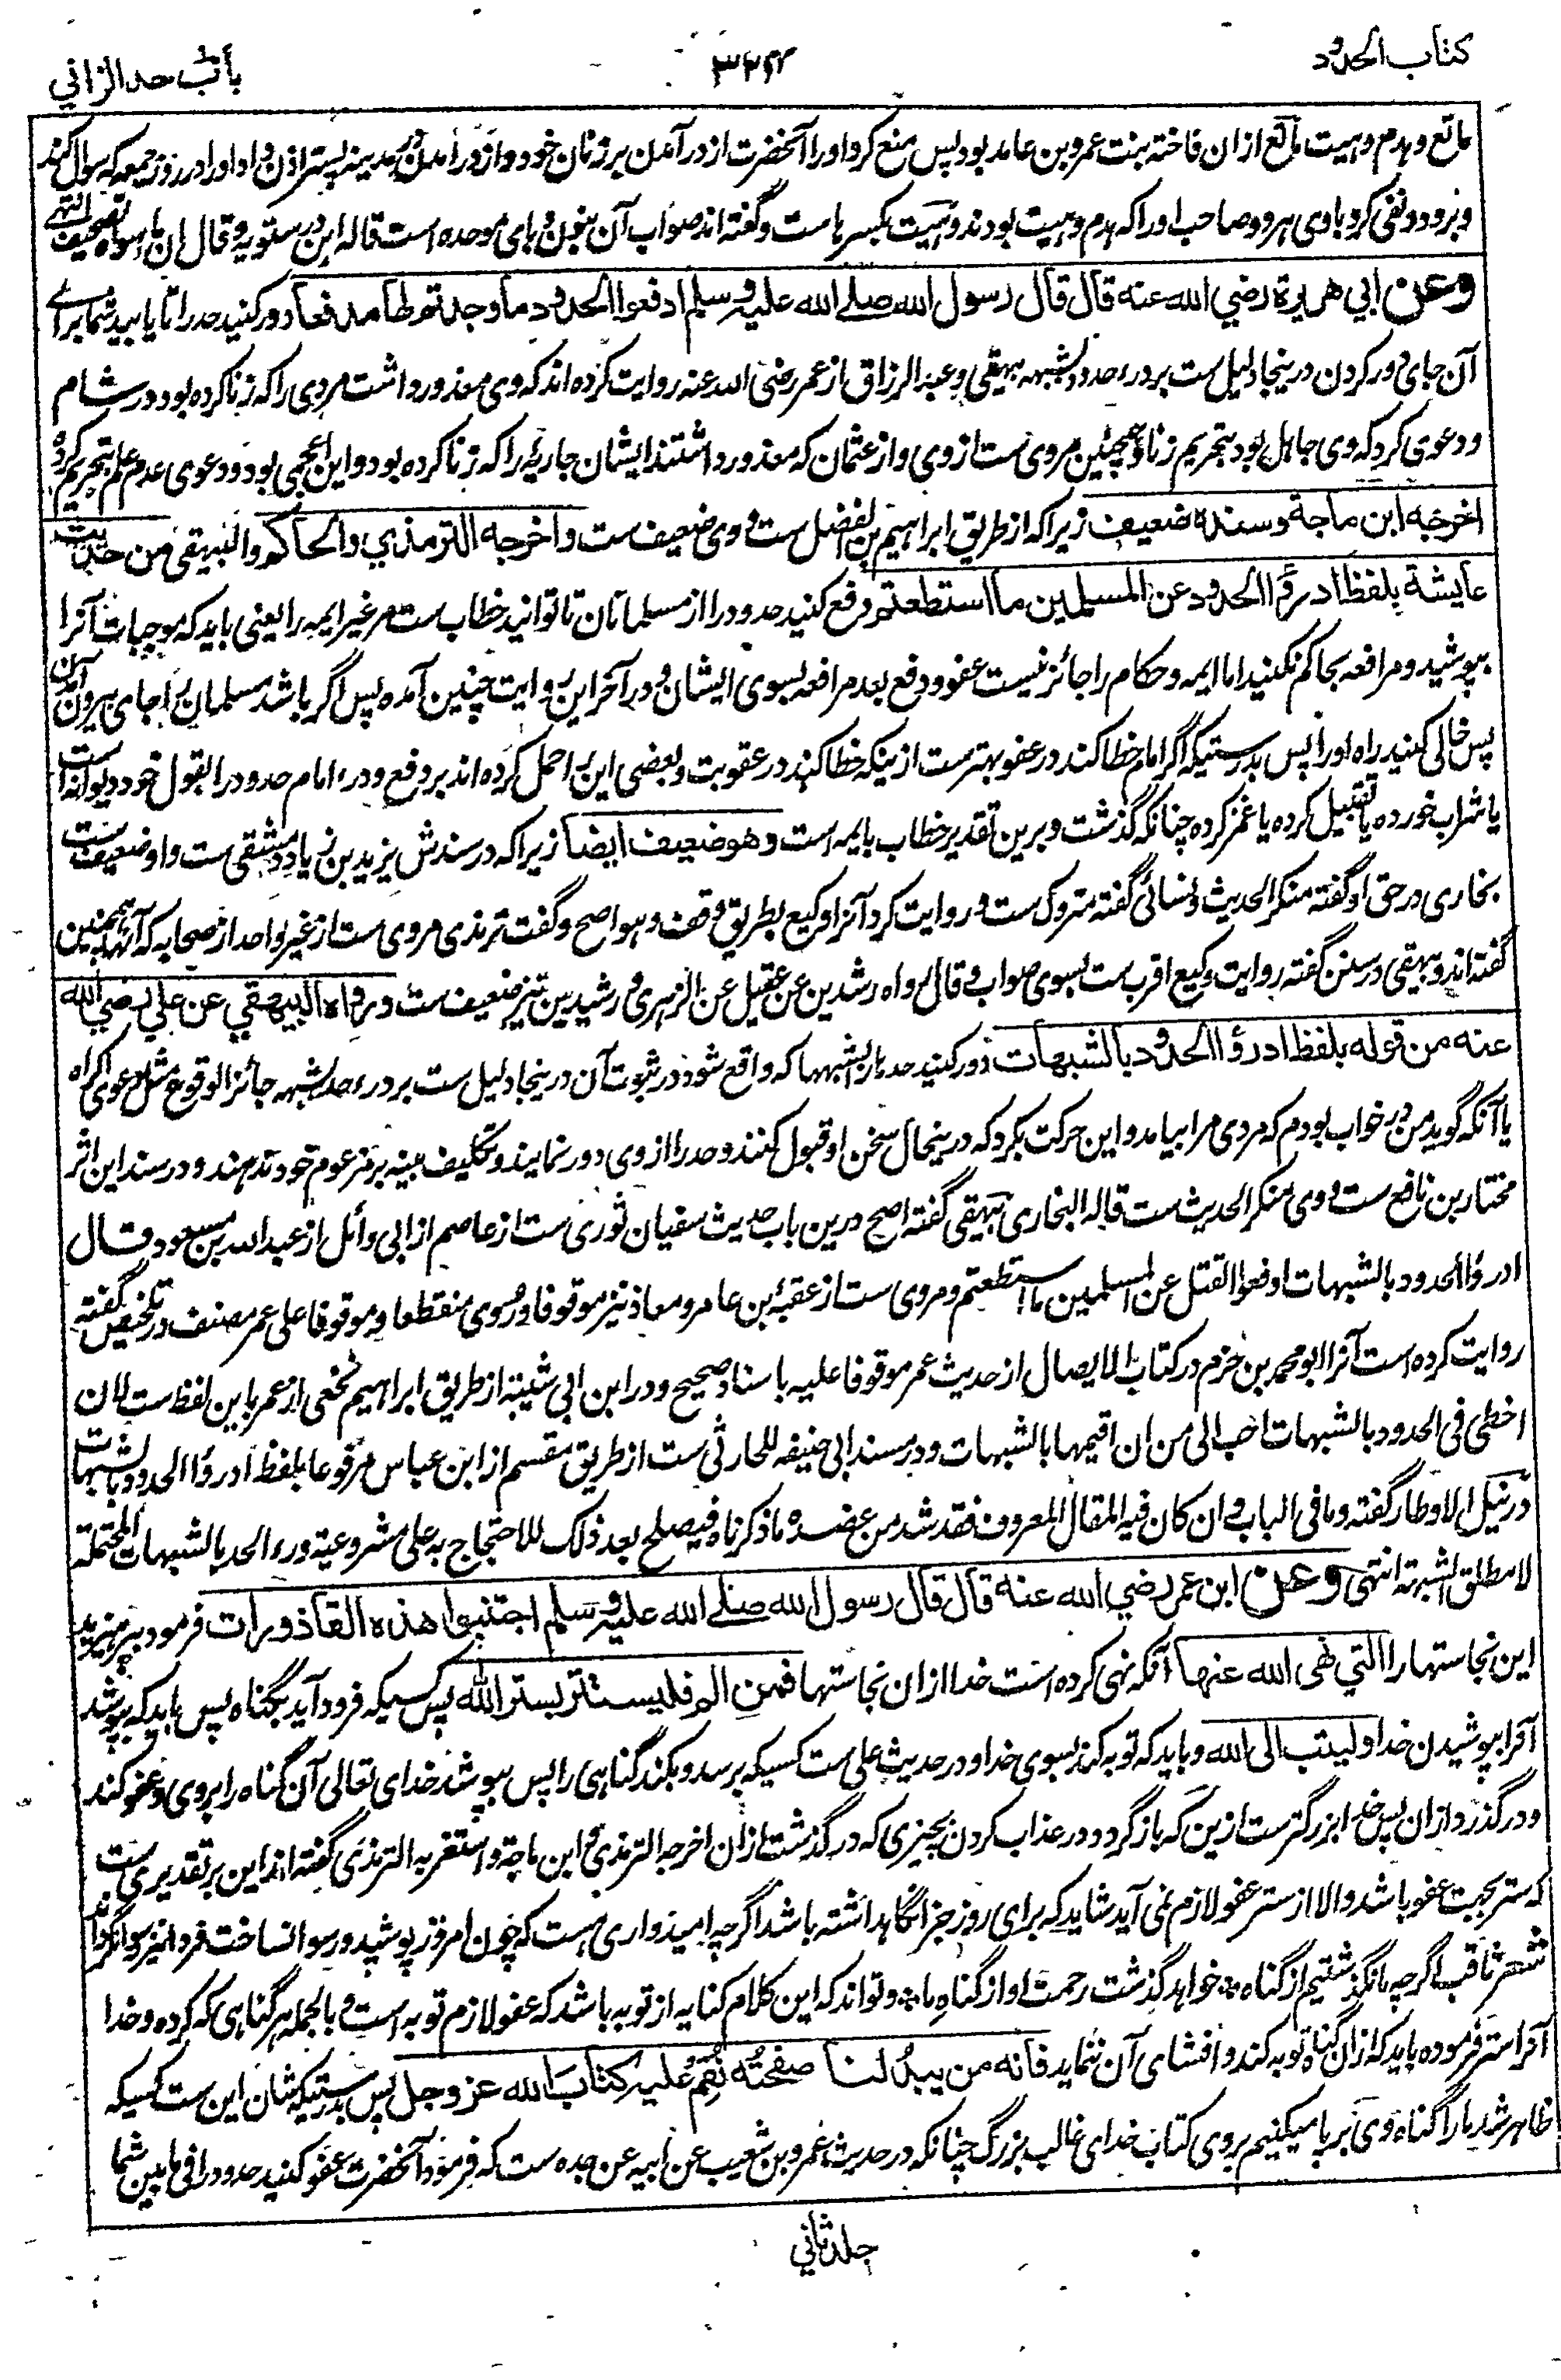 کتاب الحدود
باب حد الزاني
ماتع و هدم و هیت ماتع ازان فاختہ بنت عمرو بن عامد بود پس منع کرد او را آنحضرت از در آمدن بر زنان خود و از در آمدن بمدینہ پستر اذن داد او را در روز جمعہ کہ سوال کند
و برود و نفی کرد با وی هر دو صاحب او را کہ هدم و هیت بودند و هیت بکسر ها ست و گفتہ اند صواب آن بنون و بای موحدہ است قالہ ابن درستویہ و قال ان ما سواه تصحیف انتہے
وعن ابي هريرة رضي الله عنه قال قال رسول الله صلے الله عليه وسلم ادفعوا الحدود ما وجدتم لها مدفعا دور کنید حد را تا یابید شما برائے
آن جای دور کردن درینجا دلیل ست بر درء حدود بشبہہ بیهقی و عبد الرزاق از عمر رضی اللہ عنہ روایت کردہ اند کہ وی معذور داشت مردی را کہ زنا کردہ بود در شام
و دعوی کرد کہ وی جاہل بود بتحریم زنا و همچنین مروی ست از وی و از عثمان کہ معذور داشتند ایشان جاریہ را کہ زنا کردہ بود و این اعجمی بود و دعوی عدم علم بتحریم کردہ
اخرجه ابن ماجة وسنده ضعيف زیراکہ از طریق ابراہیم بن الفضل ست و وی ضعیف ست واخرجه الترمذي والحاكم والبيهقي من حديث
عايشة بلفظ ادرؤا الحدود عن المسلمين ما استطعتم دفع کنید حدود را از مسلمانان تا توانید خطاب ست مر غیر ایمہ را یعنی باید کہ موجبات آنرا
بپوشید و مرافعہ بحاکم نکنید اما ایمہ و حکام را جائز نیست عفو و دفع بعد مرافعہ بسوی ایشان و در آخر این روایت چنین آمدہ پس اگر باشد مسلمان را جای بیرون آمدن
پس خالی کنید راہ او را پس بدرستیکہ اگر امام خطا کند در عفو بہتر ست ازینکہ خطا کند در عقوبت و بعضی این را حمل کردہ اند بر دفع و درء امام حدود را بقول خود دیوانہ است
یا شراب خوردہ یا تقبیل کردہ یا غمز کردہ چنانکہ گذشت و برین تقدیر خطاب بایمہ است وهو ضعيف ايضا زیراکہ در سندش یزید بن زیاد دمشقی ست و او ضعیف ست
بخاری در حق او گفتہ منکر الحدیث و نسائی گفتہ متروک ست و روایت کرد آنرا وکیع بطریق وقف و هو اصح و گفت ترمذی مروی ست از غیر واحد از صحابہ کہ آنها همچنین
گفتہ اند و بیهقی در سنن گفتہ روایت وکیع اقرب ست بسوی صواب و قال رواہ رشدین عن عقیل عن الزهری و رشیدین نیز ضعیف ست ورواه البيهقي عن علي رضي الله
عنه من قوله بلفظ ادرؤا الحدود بالشبهات دور کنید حد را بشبہها کہ واقع شود در ثبوت آن درینجا دلیل ست بر درء حد بشبہہ جائز الوقوع مثل دعوی اکراہ
یا آنکہ گوید من در خواب بودم کہ مردی مرا بیامد و این حرکت بکرد کہ درینحال سخن او قبول کنند و حد را از وی دور نمایند و تکلیف بینہ بر مزعوم خود ندہند و در سند این اثر
مختار بن نافع ست و وی منکر الحدیث ست قالہ البخاری بیهقی گفتہ اصح درین باب حدیث سفیان ثوری ست از عاصم از ابی وائل از عبد اللہ بن مسعود قال
ادرؤا الحدود بالشبهات ادفعوا القتل عن المسلمین ما استطعتم و مروی ست از عقبہ بن عامر و معاذ نیز موقوفا و مروی منقطعا و موقوفا علی عمر مصنف در تلخیص گفتہ
روایت کردہ است آنرا ابو محمد بن حزم در کتاب الایصال از حدیث عمر موقوفا علیہ باسناد صحیح و در ابن ابی شیبہ از طریق ابراہیم نخعی از عمر باین لفظ ست لان
اخطی فی الحدود بالشبهات احب الی من ان اقیمها بالشبهات و در مسند ابی حنیفہ للحارثی ست از طریق مقسم از ابن عباس مرفوعا بلفظ ادرؤا الحدود بالشبهات
در نیل الاوطار گفتہ و ما فی الباب و ان کان فیہ المقال المعروف فقد شد من عضدہ ما ذکرناہ فیصلح بعد ذلک للاحتجاج بہ علی مشروعیة درء الحد بالشبهات المحتملة
لا مطلق الشبہة انتهی وعن ابن عمر رضي الله عنه قال قال رسول الله صلے الله عليه وسلم اجتنبوا هذه القاذورات فرمود بپرہیزید
این نجاستها را التي نهى الله عنها آنکہ نہی کردہ است خدا ازان نجاستها فمن الم فليستتر بستر الله پس کسیکہ فرود آید بگناہ پس باید کہ بپوشد
آنرا بپوشیدن خدا وليتب الى الله و باید کہ توبہ کند بسوی خدا و در حدیث علی ست کسیکہ برسد و بکند گناہی را پس بپوشد خدای تعالی آن گناہ را بر وی و عفو کند
و در گذرد ازان پس خدا بزرگتر ست ازین کہ باز گردد در عذاب کردن بچیزی کہ در گذشت ازان اخرجہ الترمذی و ابن ماجہ و استغربہ الترمذی گفتہ اند این بر تقدیری ست
کہ ستر بجہت عفو باشد والا از ستر عفو لازم نمی آید شاید کہ برای روز جزا نگاہداشتہ باشد اگرچہ امیدواری ہست کہ چون امروز پوشید و رسوا نساخت فردا نیز رسوا نگرداند
شعر ثاقب اگرچہ ما نگذشتیم از گناہ ٭ خواہد گذشت رحمت او از گناہ ما ٭ و تواند کہ این کلام کنایہ از توبہ باشد کہ عفو لازم توبہ است و بالجملہ ہر گناہی کہ کردہ و خدا
آنرا ستر فرمودہ باید کہ ازان گناہ توبہ کند و افشای آن ننماید فانه من يبد لنا صفحته نقم عليه كتاب الله عز وجل پس بدرستیکہ شان این ست کسیکہ
ظاہر شد ما را گناہ وی بر پا میکنیم بر وی کتاب خدای غالب بزرگ چنانکہ در حدیث عمرو بن شعیب عن ابیہ عن جدہ ست کہ فرمود آنحضرت عفو کنید حدود را فی ما بین شما
جلد ثاني